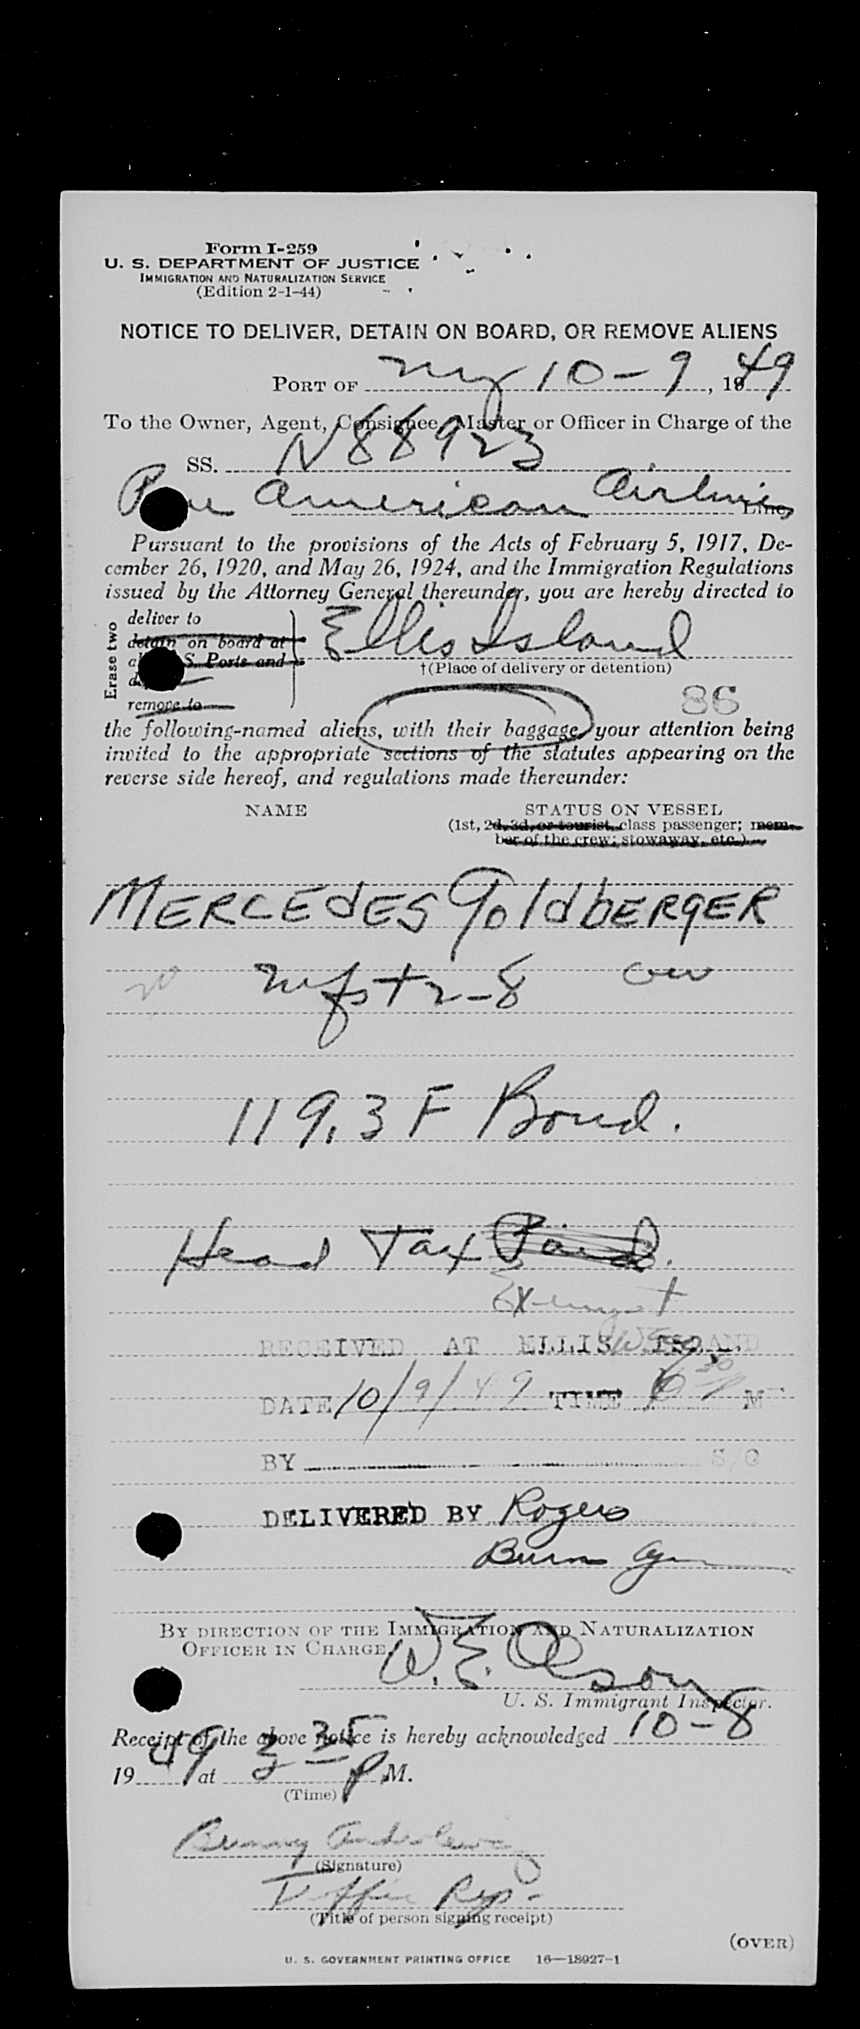 Form I-259
U. S. DEPARTMENT OF JUSTICE
IMMIGRATION AND NATURALIZATION SERVICE
(Edition 2-1-44)
NOTICE TO DELIVER, DETAIN ON BOARD, OR REMOVE ALIENS
PORT OF NY 10-9, 1949
To the Owner, Agent, Consignee, Master or Officer in Charge of the
SS. N88923
American Airlines Line
Pursuant to the provisions of the Acts of February 5, 1917, De-
cember 26, 1920, and May 26, 1924, and the Immigration Regulations
issued by the Attorney General thereunder, you are hereby directed to
Erase two
deliver to
detain on board at
S. Ports and
remove to
Ellis Island
†(Place of delivery or detention)
86
the following-named aliens, with their baggage, your attention being
invited to the appropriate sections of the statutes appearing on the
reverse side hereof, and regulations made thereunder:
NAME STATUS ON VESSEL
(1st, 2d, 3d, or tourist, class passenger; mem-
ber of the crew; stowaway, etc.)
MERCEDES GoldbERGER
mfst 2-8
119.3 F Bond.
Head Tax Paid.
Exempt
RECEIVED AT ELLIS ISLAND
DATE 10/9/49 TIME 6 30 P M
BY S/G
DELIVERED BY Rogers
Burns
BY DIRECTION OF THE IMMIGRATION AND NATURALIZATION
OFFICER IN CHARGE
W. E. Olson
U. S. Immigrant Inspector.
Receipt of the above notice is hereby acknowledged 10-8
1949 at 3 35 P.M.
(Time)
(Signature)
Rep.
(Title of person signing receipt)
(OVER)
U. S. GOVERNMENT PRINTING OFFICE 16-18927-1